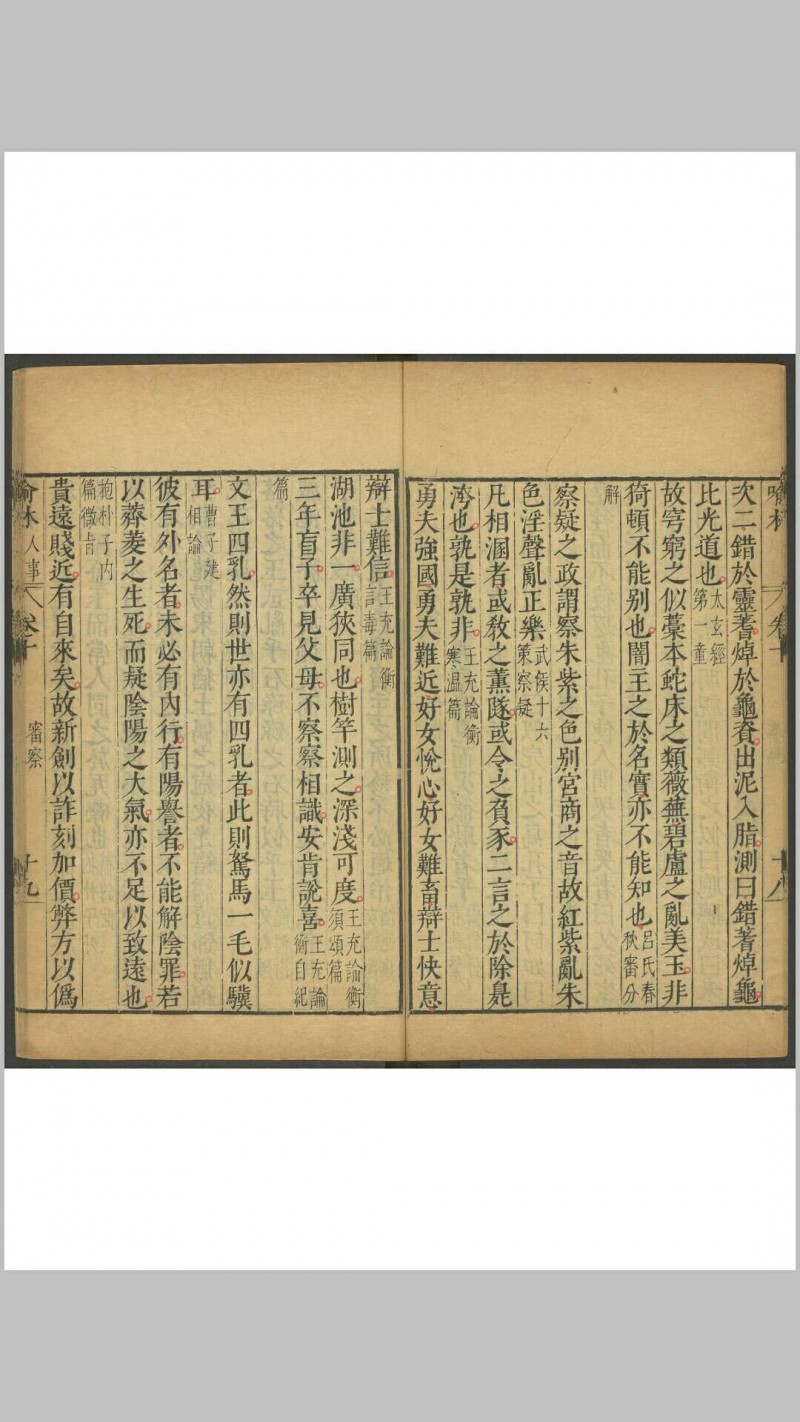 次二錯於靈蓍焯於龜資出泥入脂測曰錯蓍焯龜
比光道也太玄經第一童
故穹窮之似藁本蛇床之類薇蕪碧盧之亂美玉非
猗頓不能别也闇王之於名實亦不能知也呂氏春秋審分
解
察疑之政謂察朱紫之色别宮商之音故紅紫亂朱
色淫聲亂正樂武侯十六策察疑
凡相溷者或教之薰隧或令之負豕二言之於除臭
洿也孰是孰非王充論衡寒温篇
勇夫強國勇夫難近好女恱心好女難畜辯士快意
辯士難信王充論衡言毒篇
湖池非一廣狹同也樹竿測之深淺可度王充論衡須頌篇
三年盲子卒見父母不察察相識安肯說喜王充論衡自紀
篇
文王四乳然則世亦有四乳者此則駑馬一毛似驥
耳曹子建相論
彼有外名者未必有内行有陽譽者不能解陰罪若
以薺菱之生死而疑陰陽之大氣亦不足以致遠也
抱朴子内篇微旨
貴遠賤近有自來矣故新劍以詐刻加價弊方以僞
人事 卷十 審察 十九